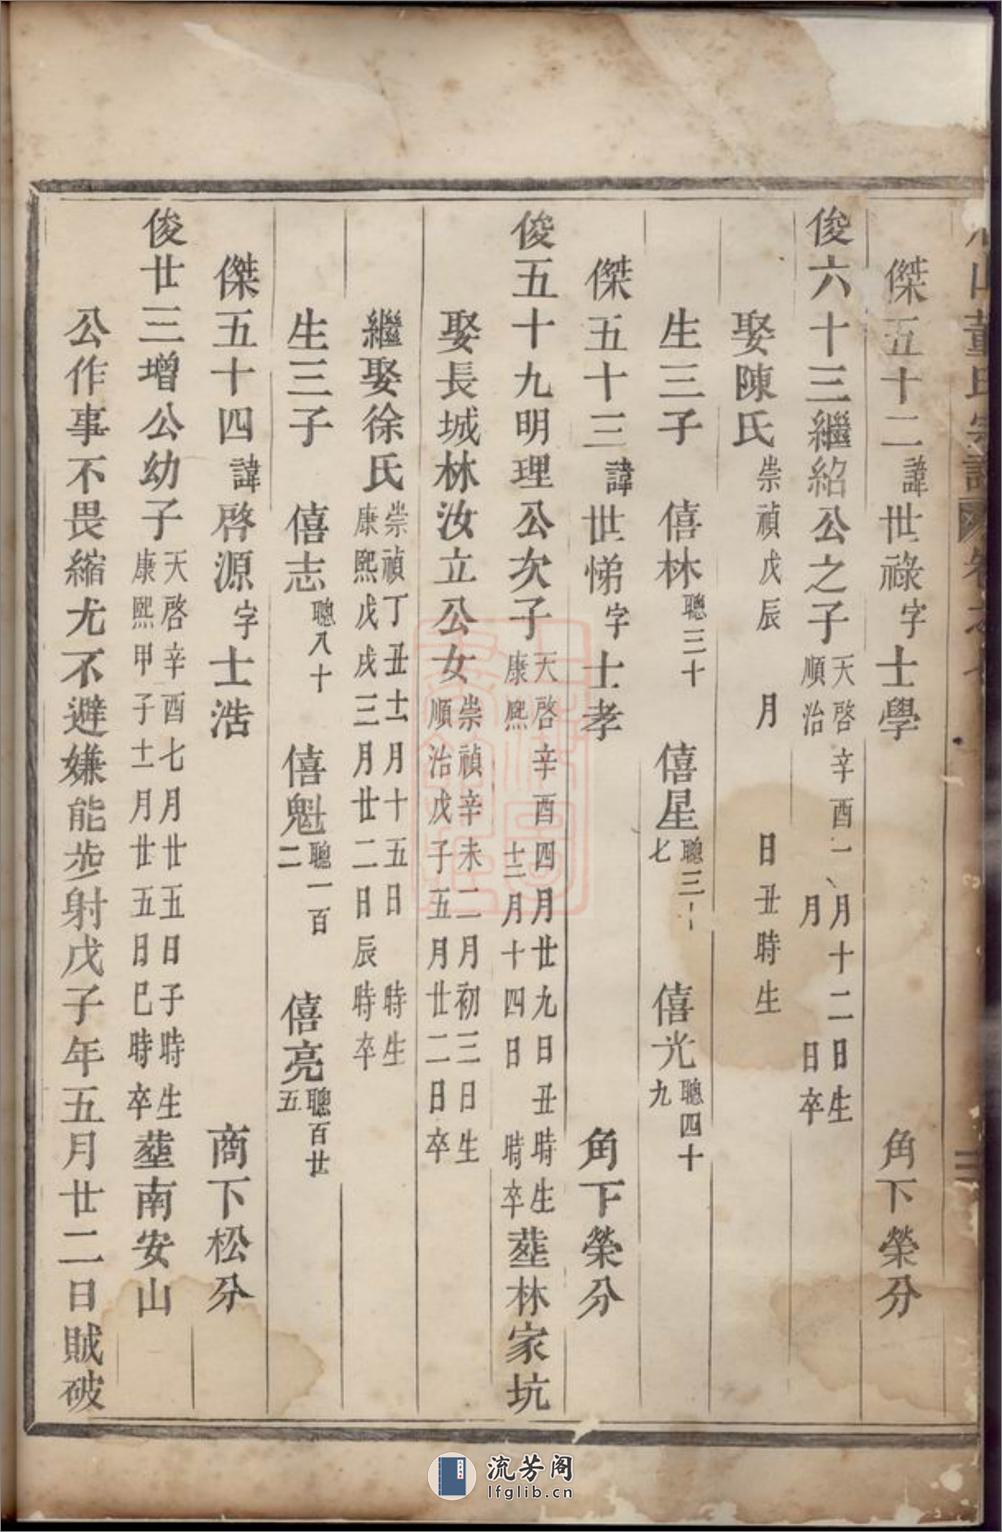 山董氏宗譜 卷之七
傑五十二諱世祿字士學 角下榮分
俊六十三繼紹公之子 天啓辛酉一月十二日生 順治 月 日卒
娶陳氏 崇禎戊辰 月 日丑時生
生三子 僖林聰三十 僖星聰三 七 僖光聰四十九
傑五十三諱世悌字士孝 角下榮分
俊五十九明理公次子 天啓辛酉四月廿九日丑時生 康熙 十二月十四日 時卒 塟林家坑
娶長城林汝立公女 崇禎辛未二月初三日生 順治戊子五月廿二日卒
繼娶徐氏 崇禎丁丑十一月十五日 時生 康熙戊戌三月廿二日辰時卒
生三子 僖志聰八十 僖魁聰一百二 僖亮聰百廿五
傑五十四諱啓源字士浩 商下松分
俊廿三增公幼子 天啓辛酉七月廿五日子時生 康熙甲子十一月廿五日巳時卒 塟南安山
公作事不畏縮尤不避嫌能步射戊子年五月廿二日賊破
流芳阁
lfglib.cn